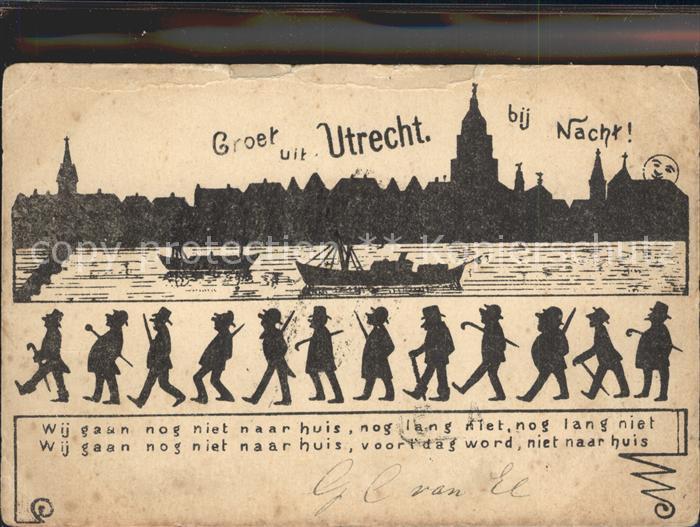 Groet uit Utrecht. bij Nacht!
copy protection ** Kopierschutz
Wij gaan nog niet naar huis, nog lang niet, nog lang niet
Wij gaan nog niet naar huis, voor t dag word, niet naar huis
G C van El